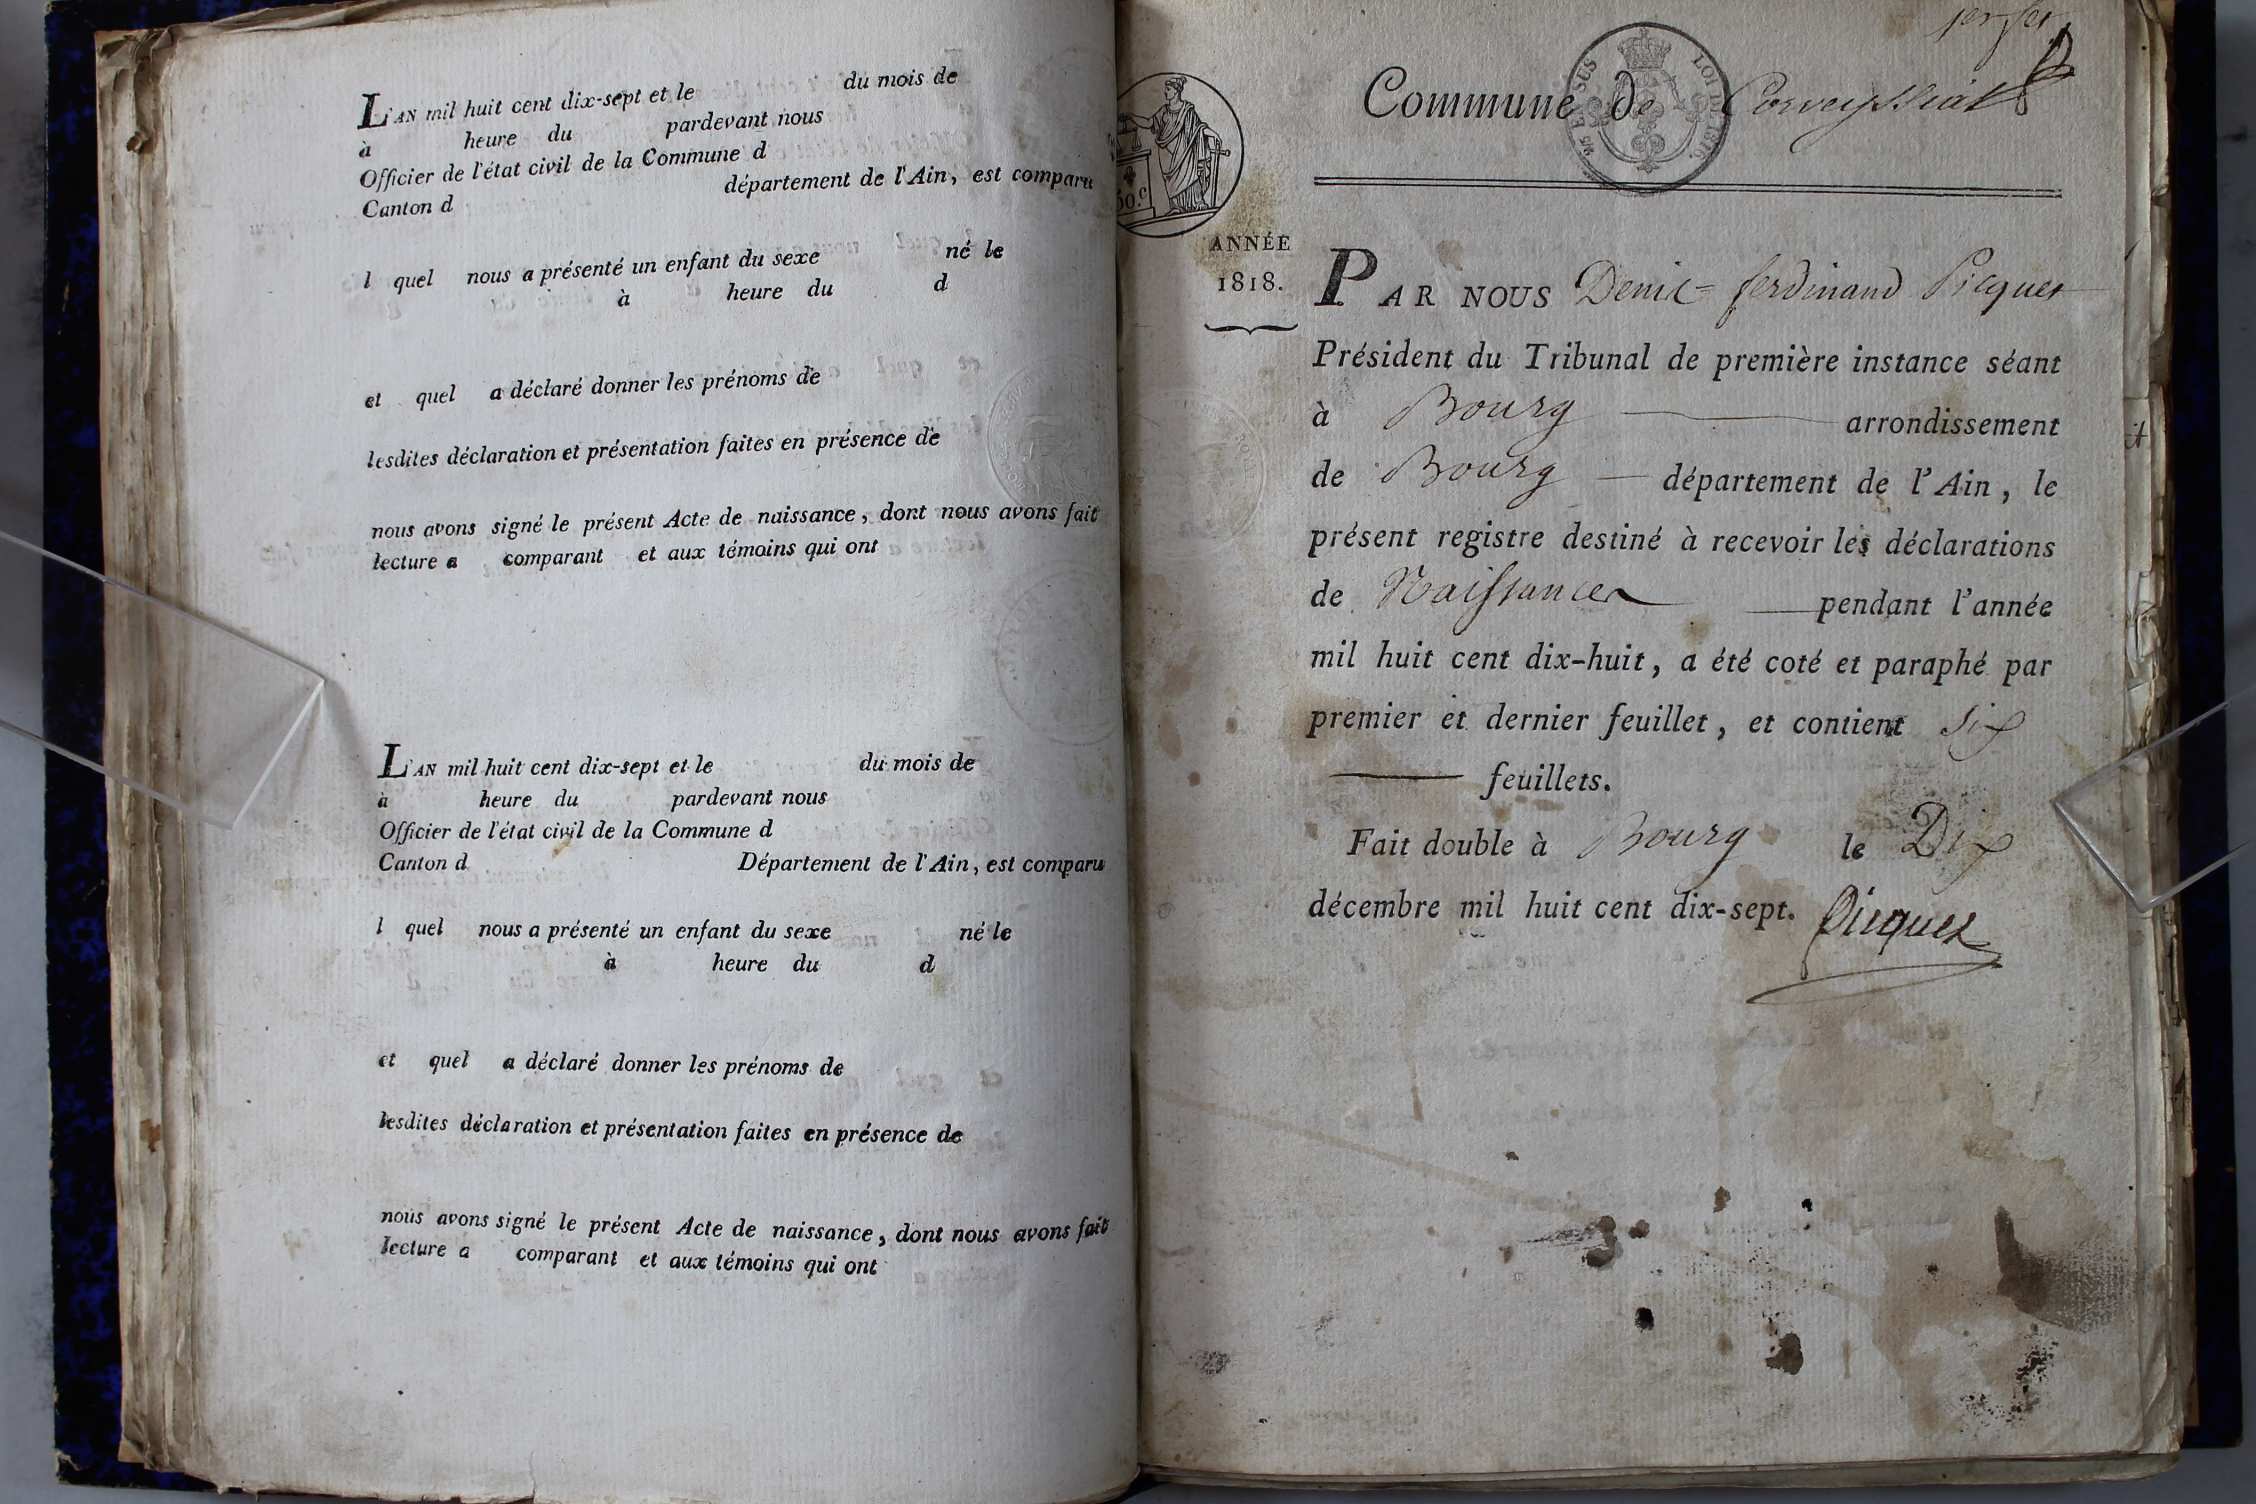 L'AN mil huit cent dix-sept et le du mois de
à heure du pardevant nous
Officier de l'état civil de la Commune d
Canton d département de l'Ain, est comparu
l quel nous a présenté un enfant du sexe né le
à heure du d
et quel a déclaré donner les prénoms de
lesdites déclaration et présentation faites en présence de
nous avons signé le présent Acte de naissance, dont nous avons fait
lecture a comparant et aux témoins qui ont
L'AN mil huit cent dix-sept et le du mois de
à heure du pardevant nous
Officier de l'état civil de la Commune d
Canton d Département de l'Ain, est comparu
l quel nous a présenté un enfant du sexe né le
à heure du d
et quel a déclaré donner les prénoms de
lesdites déclaration et présentation faites en présence de
nous avons signé le présent Acte de naissance, dont nous avons fait
lecture a comparant et aux témoins qui ont
Commune de Corveyssiat
LOI DE 1816.
50.c
ANNÉE
1818.
PAR NOUS Denis=ferdinand Picquet
Président du Tribunal de première instance séant
à Bourg arrondissement
de Bourg département de l'Ain, le
présent registre destiné à recevoir les déclarations
de Naissances pendant l'année
mil huit cent dix-huit, a été coté et paraphé par
premier et dernier feuillet, et contient six
feuillets.
Fait double à Bourg le Dix
décembre mil huit cent dix-sept. Picquet